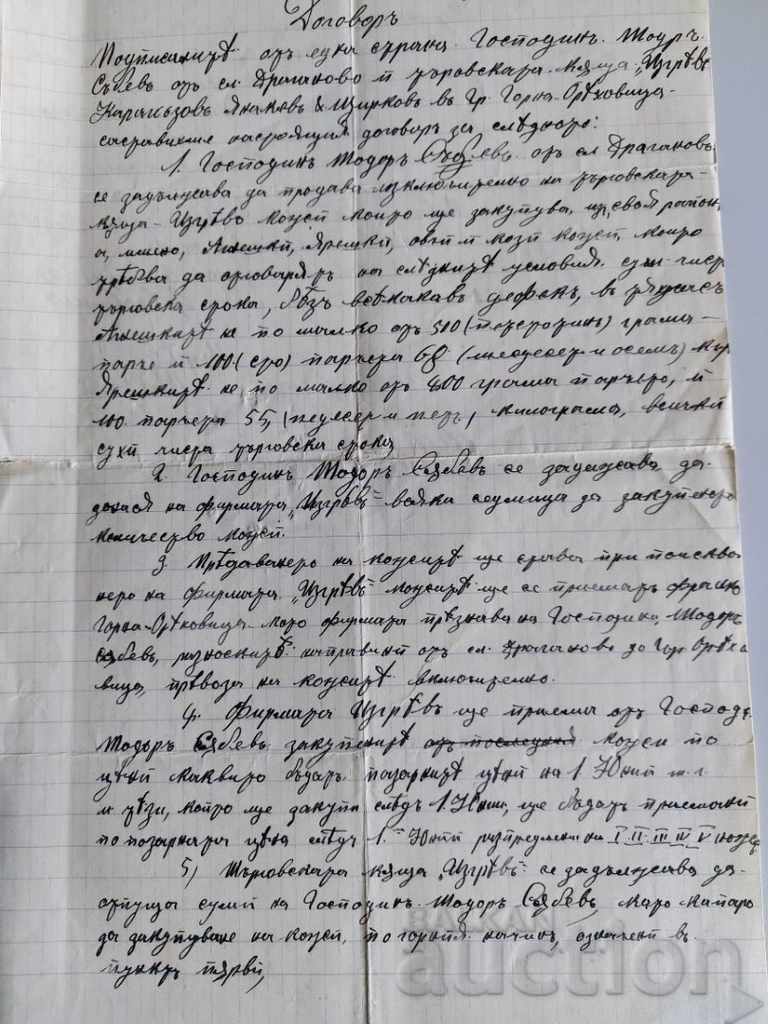 Договоръ
Подписанитѣ отъ една страна Господинъ Тодоръ
Събевъ отъ с. Драганово и търговската къща „Изгрѣвъ
Каракъзовъ & Цирковъ въ Гр. Горна-Орѣховица
съставихме настоящия договоръ за слѣдното:
1. Господинъ Тодоръ Събевъ отъ с. Драганово
се задължава да продава изключително на търговската
къща Изгрѣвъ кожи които ще закупува изъ своя район,
а, имено, Агнешки, Ярешки, овчи и кози кожи, които
трѣбва да отговарятъ на слѣднитѣ условия сухи чиста
търговска стока, безъ всѣкакавъ дефектъ, въ
Агнешкитѣ не по малко отъ 500 (петстотинъ) грама
парче и 100 (сто) парчета 68 (шесдесет и осемъ) кгр
Ярешкитѣ не по малко отъ 400 грама парчето, и
100 парчета 55, (педесет и петъ) килограма, всички
сухи чиста търговска стока
2. Господинъ Тодоръ Събевъ се задължава да
донася на фирмата „Изгрѣвъ" всяка седмица да закупеното
количество кожи.
3. Прѣдаването на кожитѣ ще става при поисква
нето на фирмата „Изгрѣвъ" кожитѣ ще се приематъ франко
Горна-Орѣховица като фирмата прѣзнава на Господина Тодоръ
Събевъ, разноскитѣ направени отъ с. Драганово до Гор. Орѣхо
вица, прѣвоза на кожитѣ включително.
4. Фирмата Изгрѣвъ ще приема отъ Господ.
Тодоръ Събевъ закупенитѣ отъ последний кожи по
цѣни каквито бѫдатъ пазарнитѣ цѣни на 1 Юний т. г.
и тѣзи, които ще закупи слѣдъ 1. Юни, ще бѫдатъ приемани
по пазарната цѣна слѣдъ 1. Юний разпредѣлени на I II III IV V кожи
5) Търговската къща „Изгрѣвъ" се задължава да
отпуща суми на Господинъ Тодоръ Събевъ, като капаро
за закупуване на кожи, по горния начинъ, означени въ
пунктъ първи,
auction